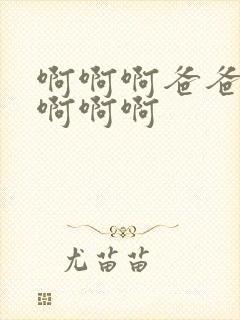 啊啊啊爸爸
啊啊啊
尤苗苗